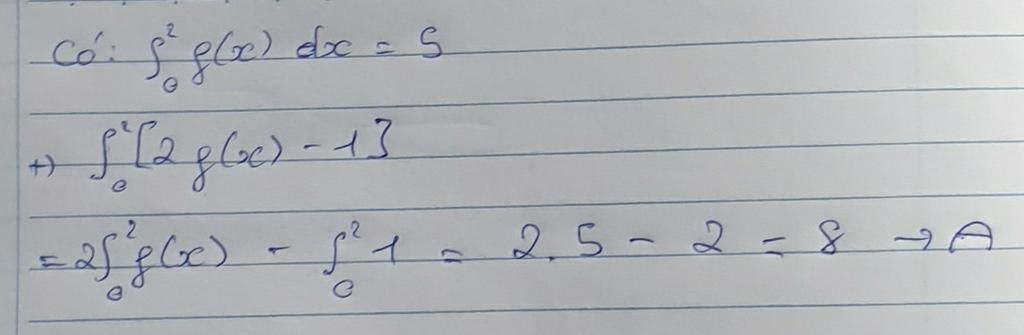 Có: ∫₀² f(x) dx = 5
+) ∫₀² [2 f(x) - 1]
= 2∫₀² f(x) - ∫₀² 1 = 2.5 - 2 = 8 → A